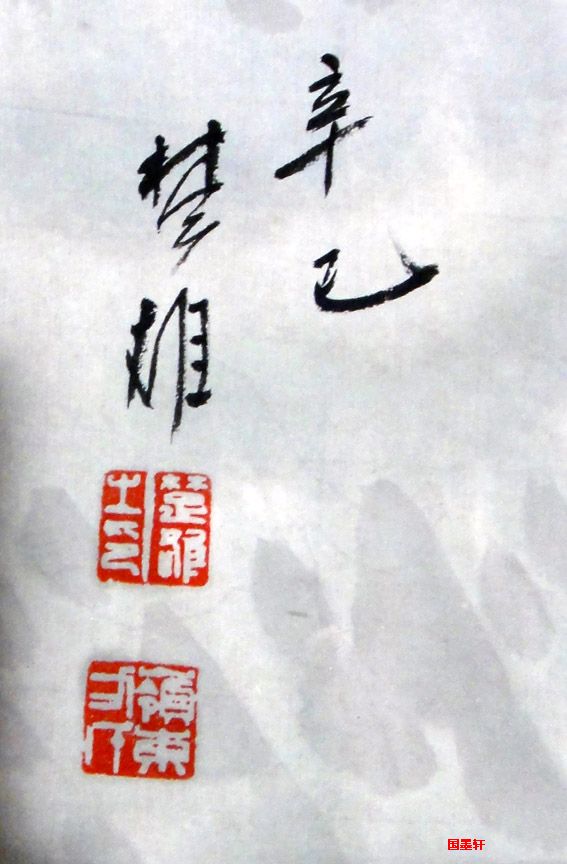 辛巳
楚雄
楚雄
嶺東
国墨轩